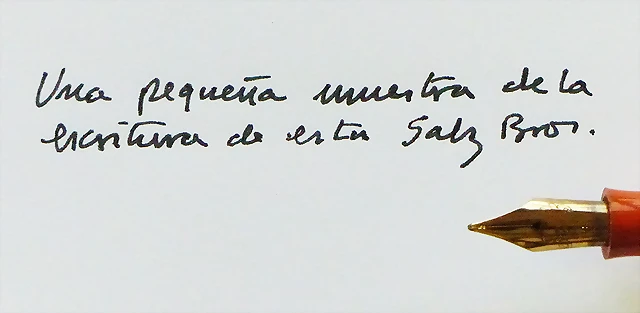 Una pequeña muestra de la
escritura de esta Salz Bros.